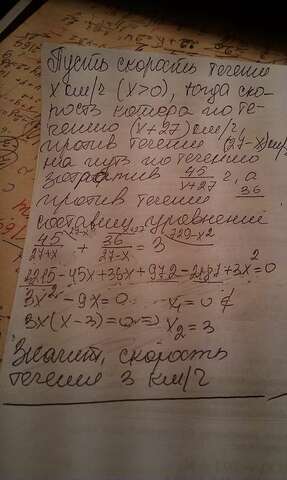 Пусть скорость течения
х км/г (х>0), тогда ско-
рость катера по те-
чению (х+27) км/г,
против течения (27-х) км/г
на путь по течению
затратив 45/х+27 г, а
против течения 36
составим уравнение
45/27+х + 36/27-х = 3 729-х²
- 45х + 36х + 972 - 2187 + 3х² = 0
3х² - 9х = 0 х₁ = 0 ∉
3х(х-3) = 0 => х₂ = 3
Значит, скорость
течения 3 км/г